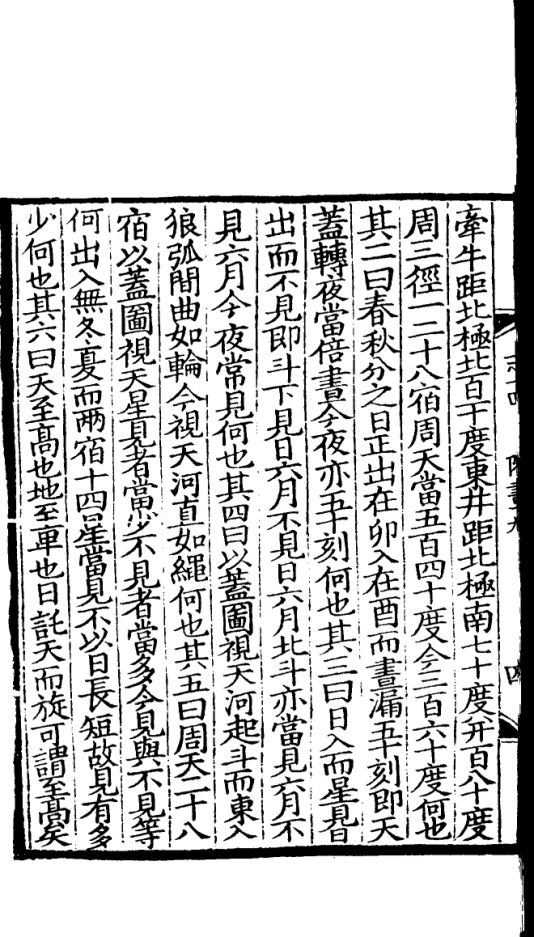 牽牛距北極北百一十度東井距北極南七十度并百八十度
周三徑一二十八宿周天當五百四十度今三百六十度何也
其二曰春秋分之日正出在卯入在酉而晝漏五十刻即天
蓋轉夜當倍晝今夜亦五十刻何也其三曰日入而星見日
出而不見即斗下見日六月不見日六月北斗亦當見六月不
見六月今夜常見何也其四曰以蓋圖視天河起斗而東入
狼弧間曲如輪今視天河直如繩何也其五曰周天二十八
宿以蓋圖視天星見者當少不見者當多今見與不見等
何出入無冬夏而兩宿十四星當見不以日長短故見有多
少何也其六曰天至高也地至卑也日託天而旋可謂至高矣